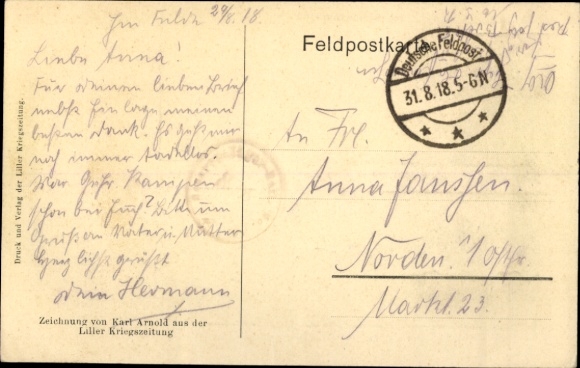 Im Felde 29/8. 18.
Liebe Anna!
Für deinen lieben Brief
nebst Einlage meinen
besten Dank. Es geht mir
noch immer tadellos.
War Gefr. Kampen
schon bei Euch? Bitte um
Grüße an Vater u. Mutter
Herzlichst grüßt
dein Hermann
Zeichnung von Karl Arnold aus der
Liller Kriegszeitung
Druck und Verlag der Liller Kriegszeitung.
Feldpostkarte
Deutsche Feldpost
31.8.18.5-6N
An Frl.
Anna Janssen.
Norden.
Markt. 23.